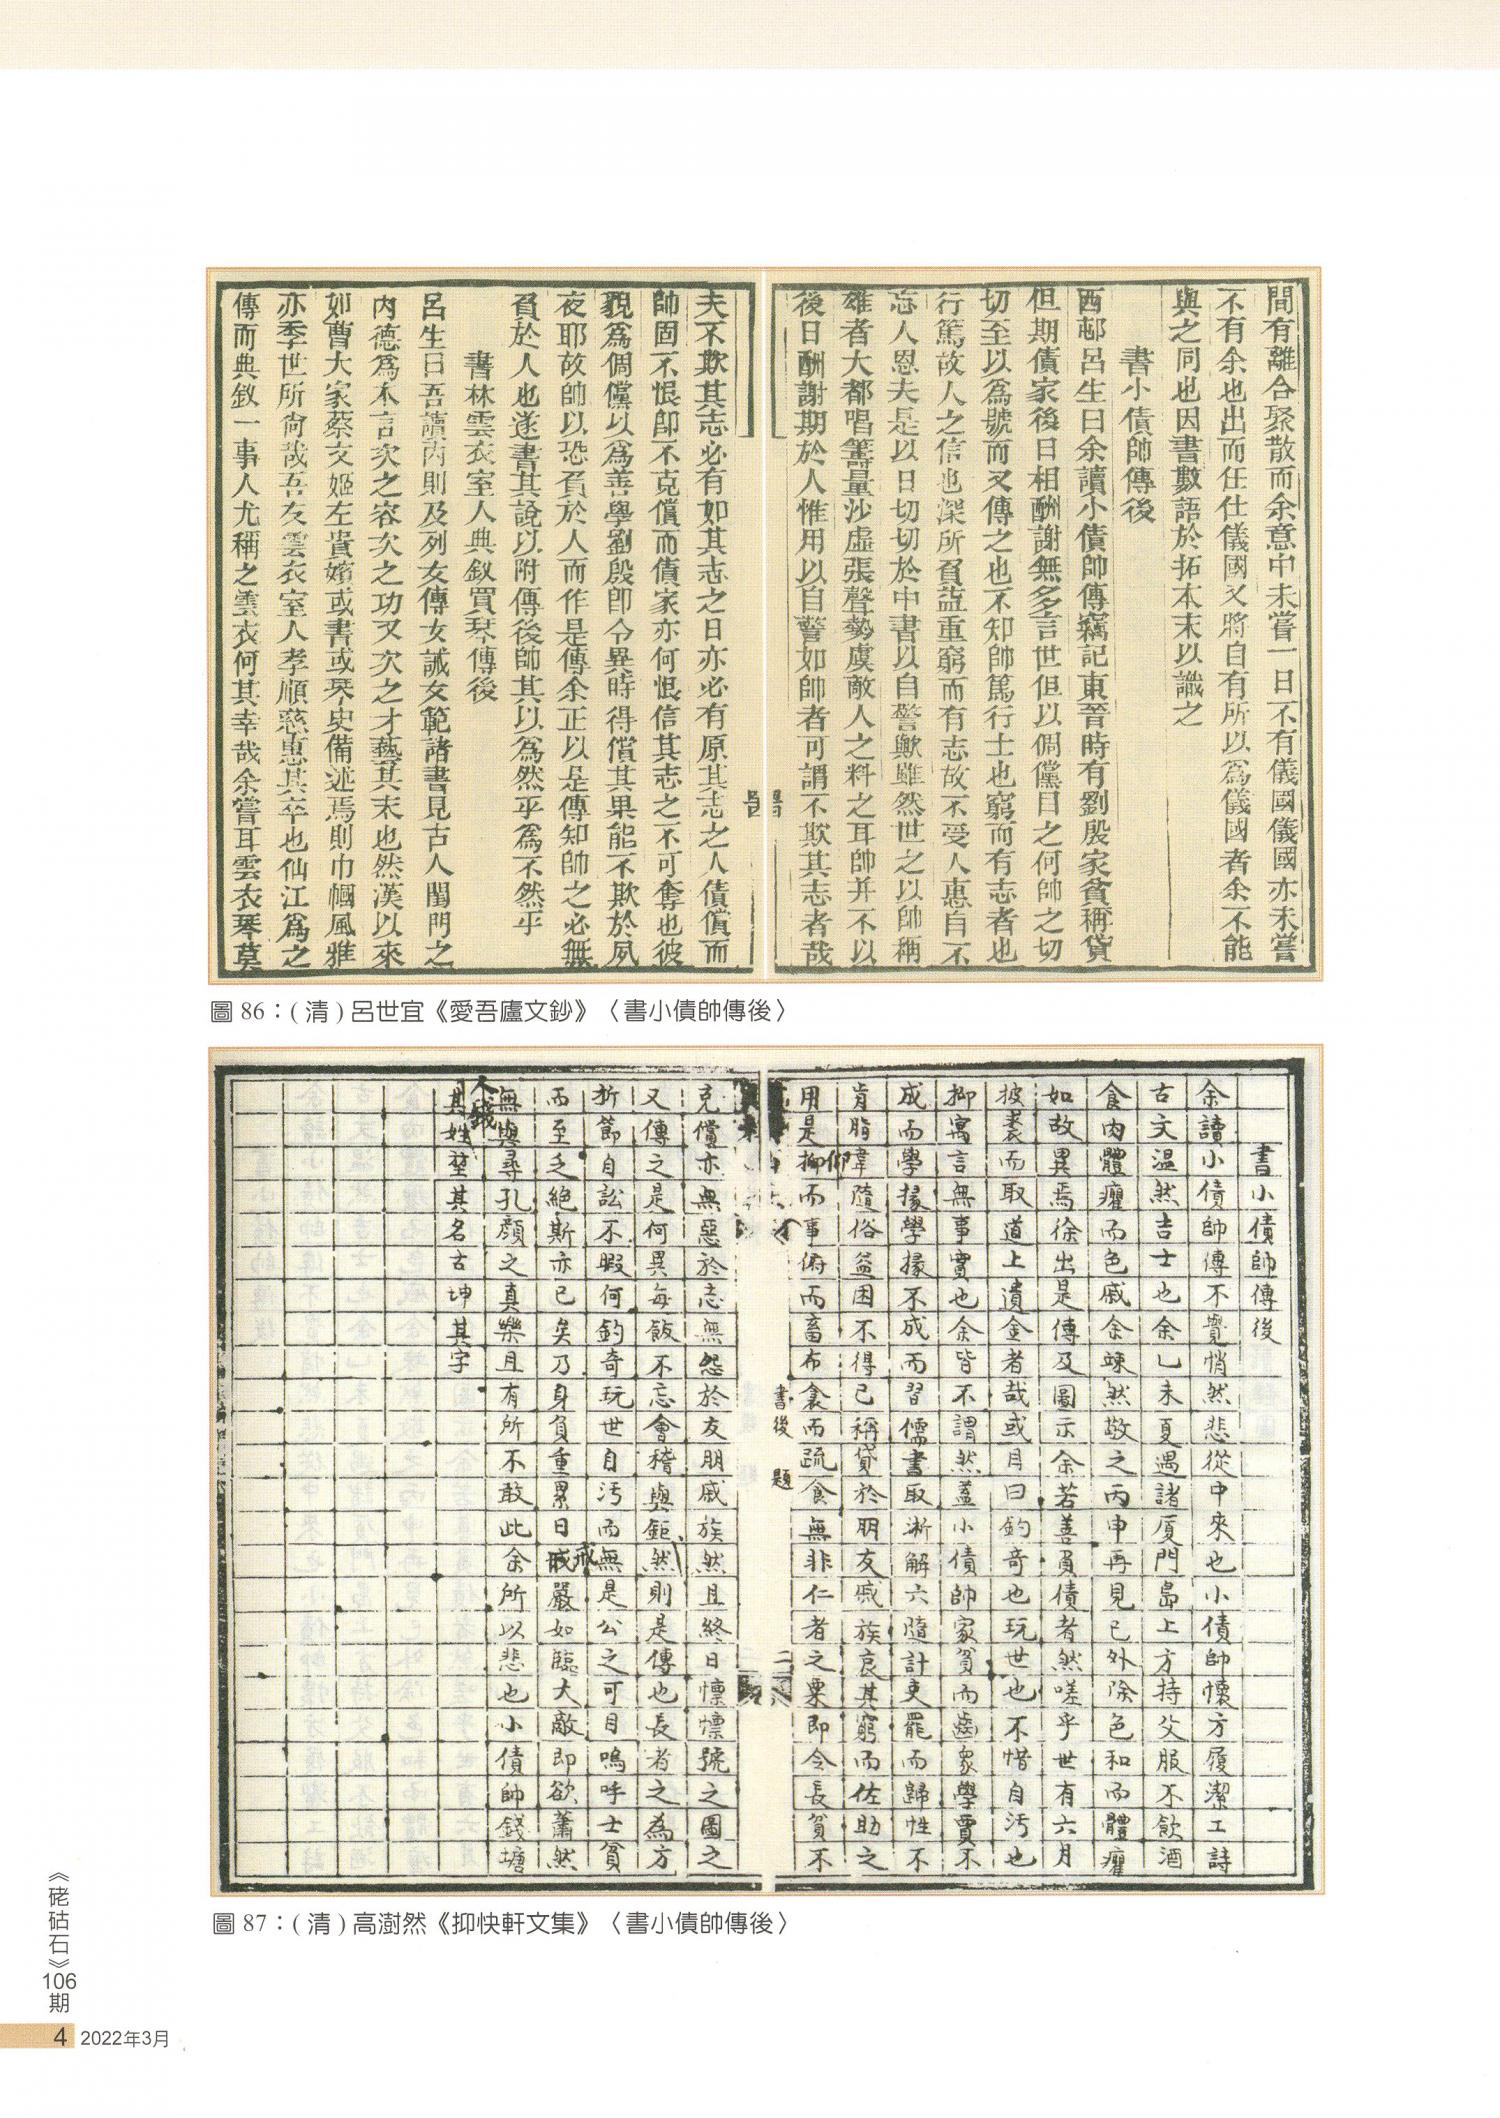 間有離合聚散而余意中未嘗一日不有儀國儀國亦未嘗
不有余也出而任仕儀國又將自有所以為儀國者余不能
與之同也因書數語於拓本末以識之
書小債帥傳後
西邨呂生曰余讀小債帥傳竊記東晉時有劉殷家貧稱貸
但期債家後日相酬謝無多言世但以倜儻目之何帥之切
切至以為號而又傳之也不知帥篤行士也窮而有志者也
行篤故人之信也深所負益重窮而有志故不受人惠自不
忘人恩夫是以日切切於中書以自警歟雖然世之以帥稱
雄者大都唱籌量沙虛張聲勢虞敵人之料之耳帥并不以
後日酬謝期於人惟用以自警如帥者可謂不欺其志者哉
夫不欺其志必有如其志之日亦必有原其志之人債償而
帥固不恨即不克償而債家亦何恨信其志之不可奪也彼
貌為倜儻以為善學劉殷即令異時得償其果能不欺於夙
夜耶故帥以恐負於人而作是傳余正以是傳知帥之必無
負於人也遂書其說以附傳後帥其以為然乎為不然乎
書林雲衣室人典釵買琴傳後
呂生曰吾讀內則及列女傳女誡女範諸書見古人閨門之
內德為本言次之容次之功又次之才藝其末也然漢以來
如曹大家蔡文姬左貴嬪或書或琴史備述焉則巾幗風雅
亦季世所尚哉吾友雲衣室人孝順慈惠其卒也仙江為之
傳而典釵一事人尤稱之雲衣何其幸哉余嘗耳雲衣琴莫
圖 86：( 清 ) 呂世宜《愛吾廬文鈔》〈書小債帥傳後〉
書小債帥傳後
余讀小債帥傳不覺悄然悲從中來也小債帥懷方履潔工詩
古文溫然吉士也余乙未夏遇諸厦門島上方持父服不飲酒
食肉體癯而色戚余竦然敬之丙申再見已外除色和而體癯
如故異焉徐出是傳及圖示余若善負債者然嗟乎世有六月
披裘而取道上遺金者哉或月曰鈞奇也玩世也不惜自污也
抑寓言無事實也余皆不謂然蓋小債帥家貧而齒眾學賈不
成而學掾學掾不成而習儒書取淅解六隨計吏罷而歸性不
肯脂韋隨俗益困不得已稱貸於朋友戚族哀其窮而佐助之
用是仰而事俯而畜布衾而疏食無非仁者之粟即令長貧不
克償亦無惡於志無怨於友朋戚族然且終日懍懍號之圖之
又傳之是何異每飯不忘會稽與鉅然則是傳也長者之為方
折節自訟不暇何鈞奇玩世自污而無是公之可目嗚呼士貧
而至乏絕斯亦已矣乃身負重累日戒嚴如臨大敵即欲蕭然
無與尋孔顏之真樂且有所不敢此余所以悲也小債帥錢塘
人錢
其姓埜其名古坤其字
書後 題
圖 87：( 清 ) 高澍然《抑快軒文集》〈書小債帥傳後〉
《硓𥑮石》106期
4 2022年3月